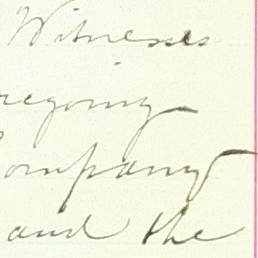 Witnesses
regoing
ompany
and the